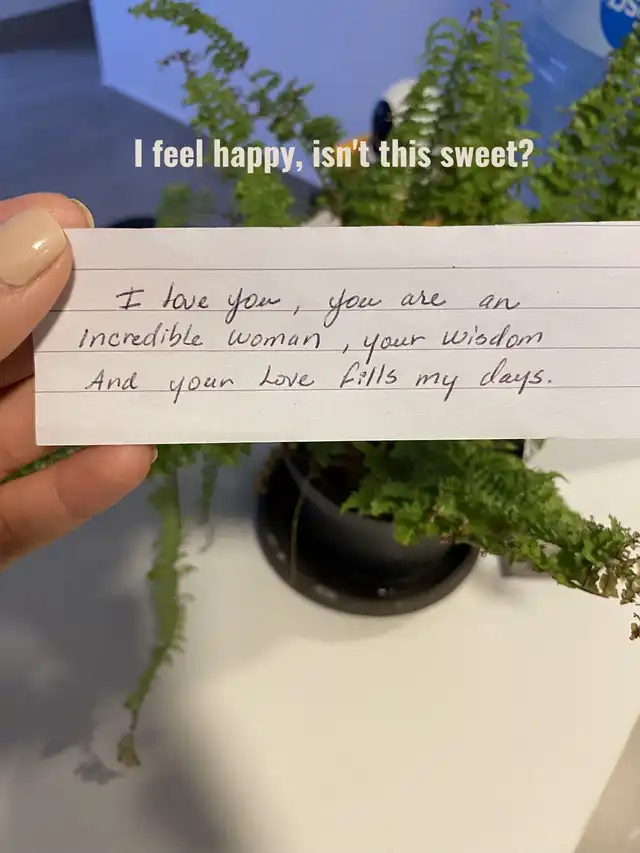 I feel happy, isn't this sweet?
I love you, you are an
incredible woman, your wisdom
And your Love fills my days.